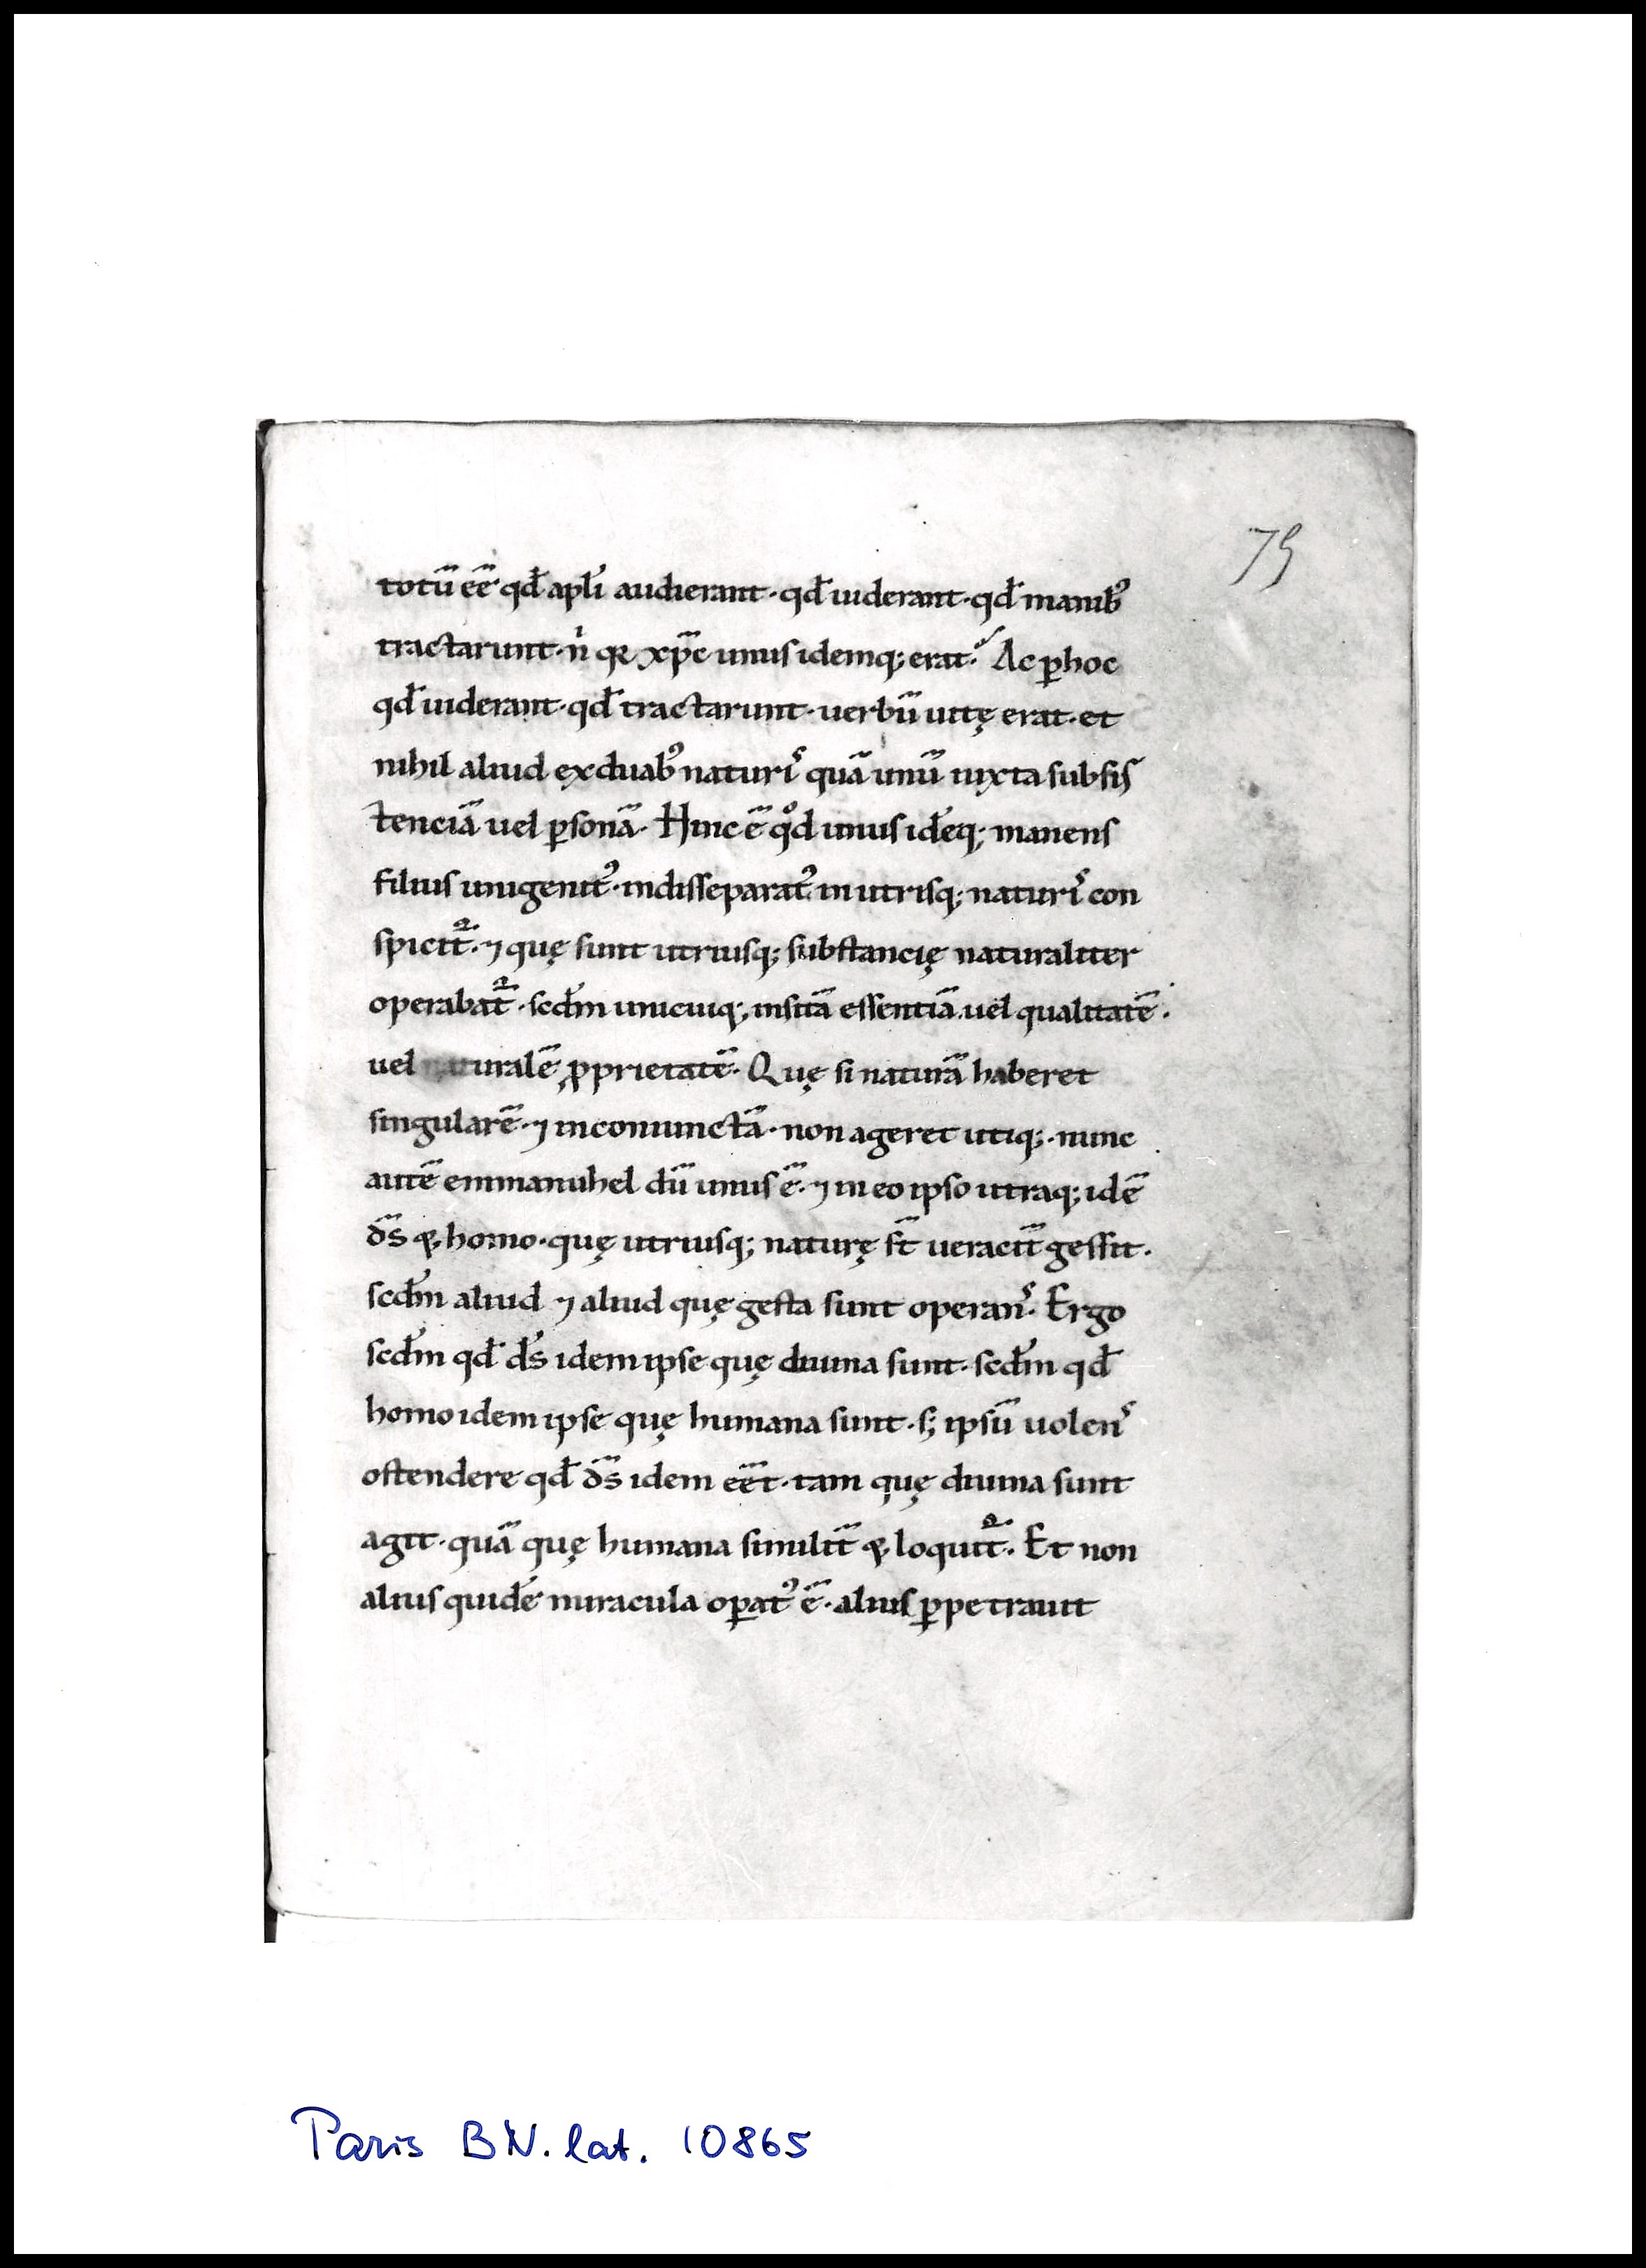 75
totū eē qđ apłi audierant · qđ uiderant · qđ manibꝰ
tractarunt · n̄ qꝛ xp̄c unus idemq; erat. Ac ꝑ hoc
qđ uiderant · qđ tractarunt · uerbū uitę erat · et
nihil aliud ex duabꝰ naturiˢ quā unū iuxta subsis
tenciā uel ꝑsonā · Hinc ē qͦd unus idēq; manens
filius unigenitꝰ · indisseparatꝰ in utrisq; naturiˢ con
spicit᷑. ⁊ quę sunt utriusq; substancię naturaliter
operabat᷑ · scđm unicuiq; insitā essentiā uel qualitatē ·
uel naturalē ꝓprietatē. Quę si naturā haberet
singularē · ⁊ inconiunctā · non ageret utiq; · nunc
autē emmanuhel dū unus ē · ⁊ in eo ipso utraq; idē
d̄s & homo · quę utriusq; naturę st̄ ueracit̄ gessit ·
scđm aliud ⁊ aliud quę gesta sunt operanˢ. Ergo
scđm qđ d̄s idem ipse quę diuina sunt · scđm qđ
homo idem ipse quę humana sunt · s; ipsū uolenˢ
ostendere qđ d̄s idem eēt · tam quę diuina sunt
agit · quā quę humana similit̄ & loquit᷑. Et non
alius quidē miracula oꝑatꝰ ē · alius ꝑpetrauit
Paris BN. lat. 10865